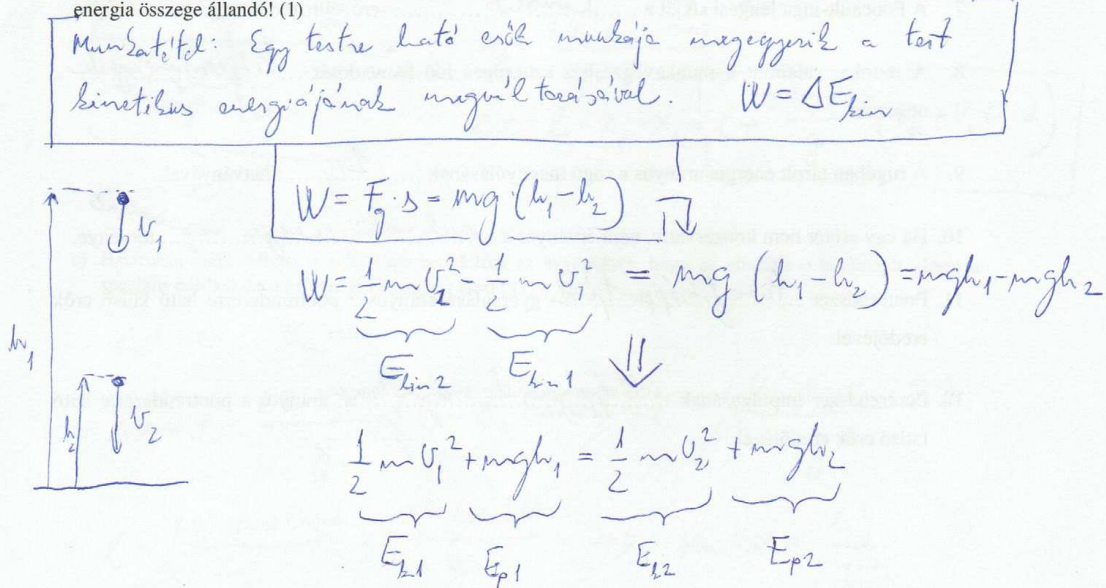 energia összege állandó! (1)
Munkatétel: Egy testre ható erők munkája megegyezik a test
kinetikus energiájának megváltozásával. W = ΔE_kin
W = F_g · s = mg · (h_1 - h_2)
W = 1/2 m v_2^2 - 1/2 m v_1^2 = mg (h_1 - h_2) = mgh_1 - mgh_2
E_kin2 E_kin1
1/2 m v_1^2 + mgh_1 = 1/2 m v_2^2 + mgh_2
E_k1 E_p1 E_k2 E_p2
v_1
h_1
h_2
v_2